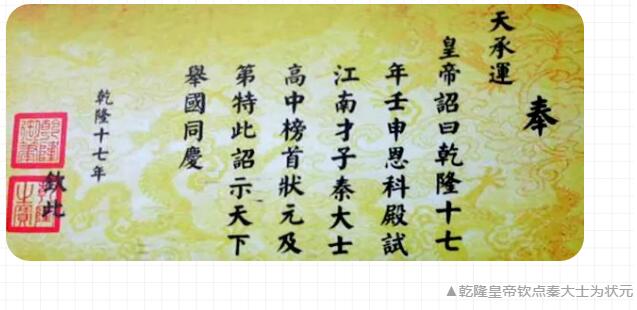 奉
天承運
皇帝詔曰乾隆十七
年壬申恩科殿試
江南才子秦大士
高中榜首狀元及
第特此詔示天下
舉國同慶
乾隆十七年
欽此
▲乾隆皇帝钦点秦大士为状元